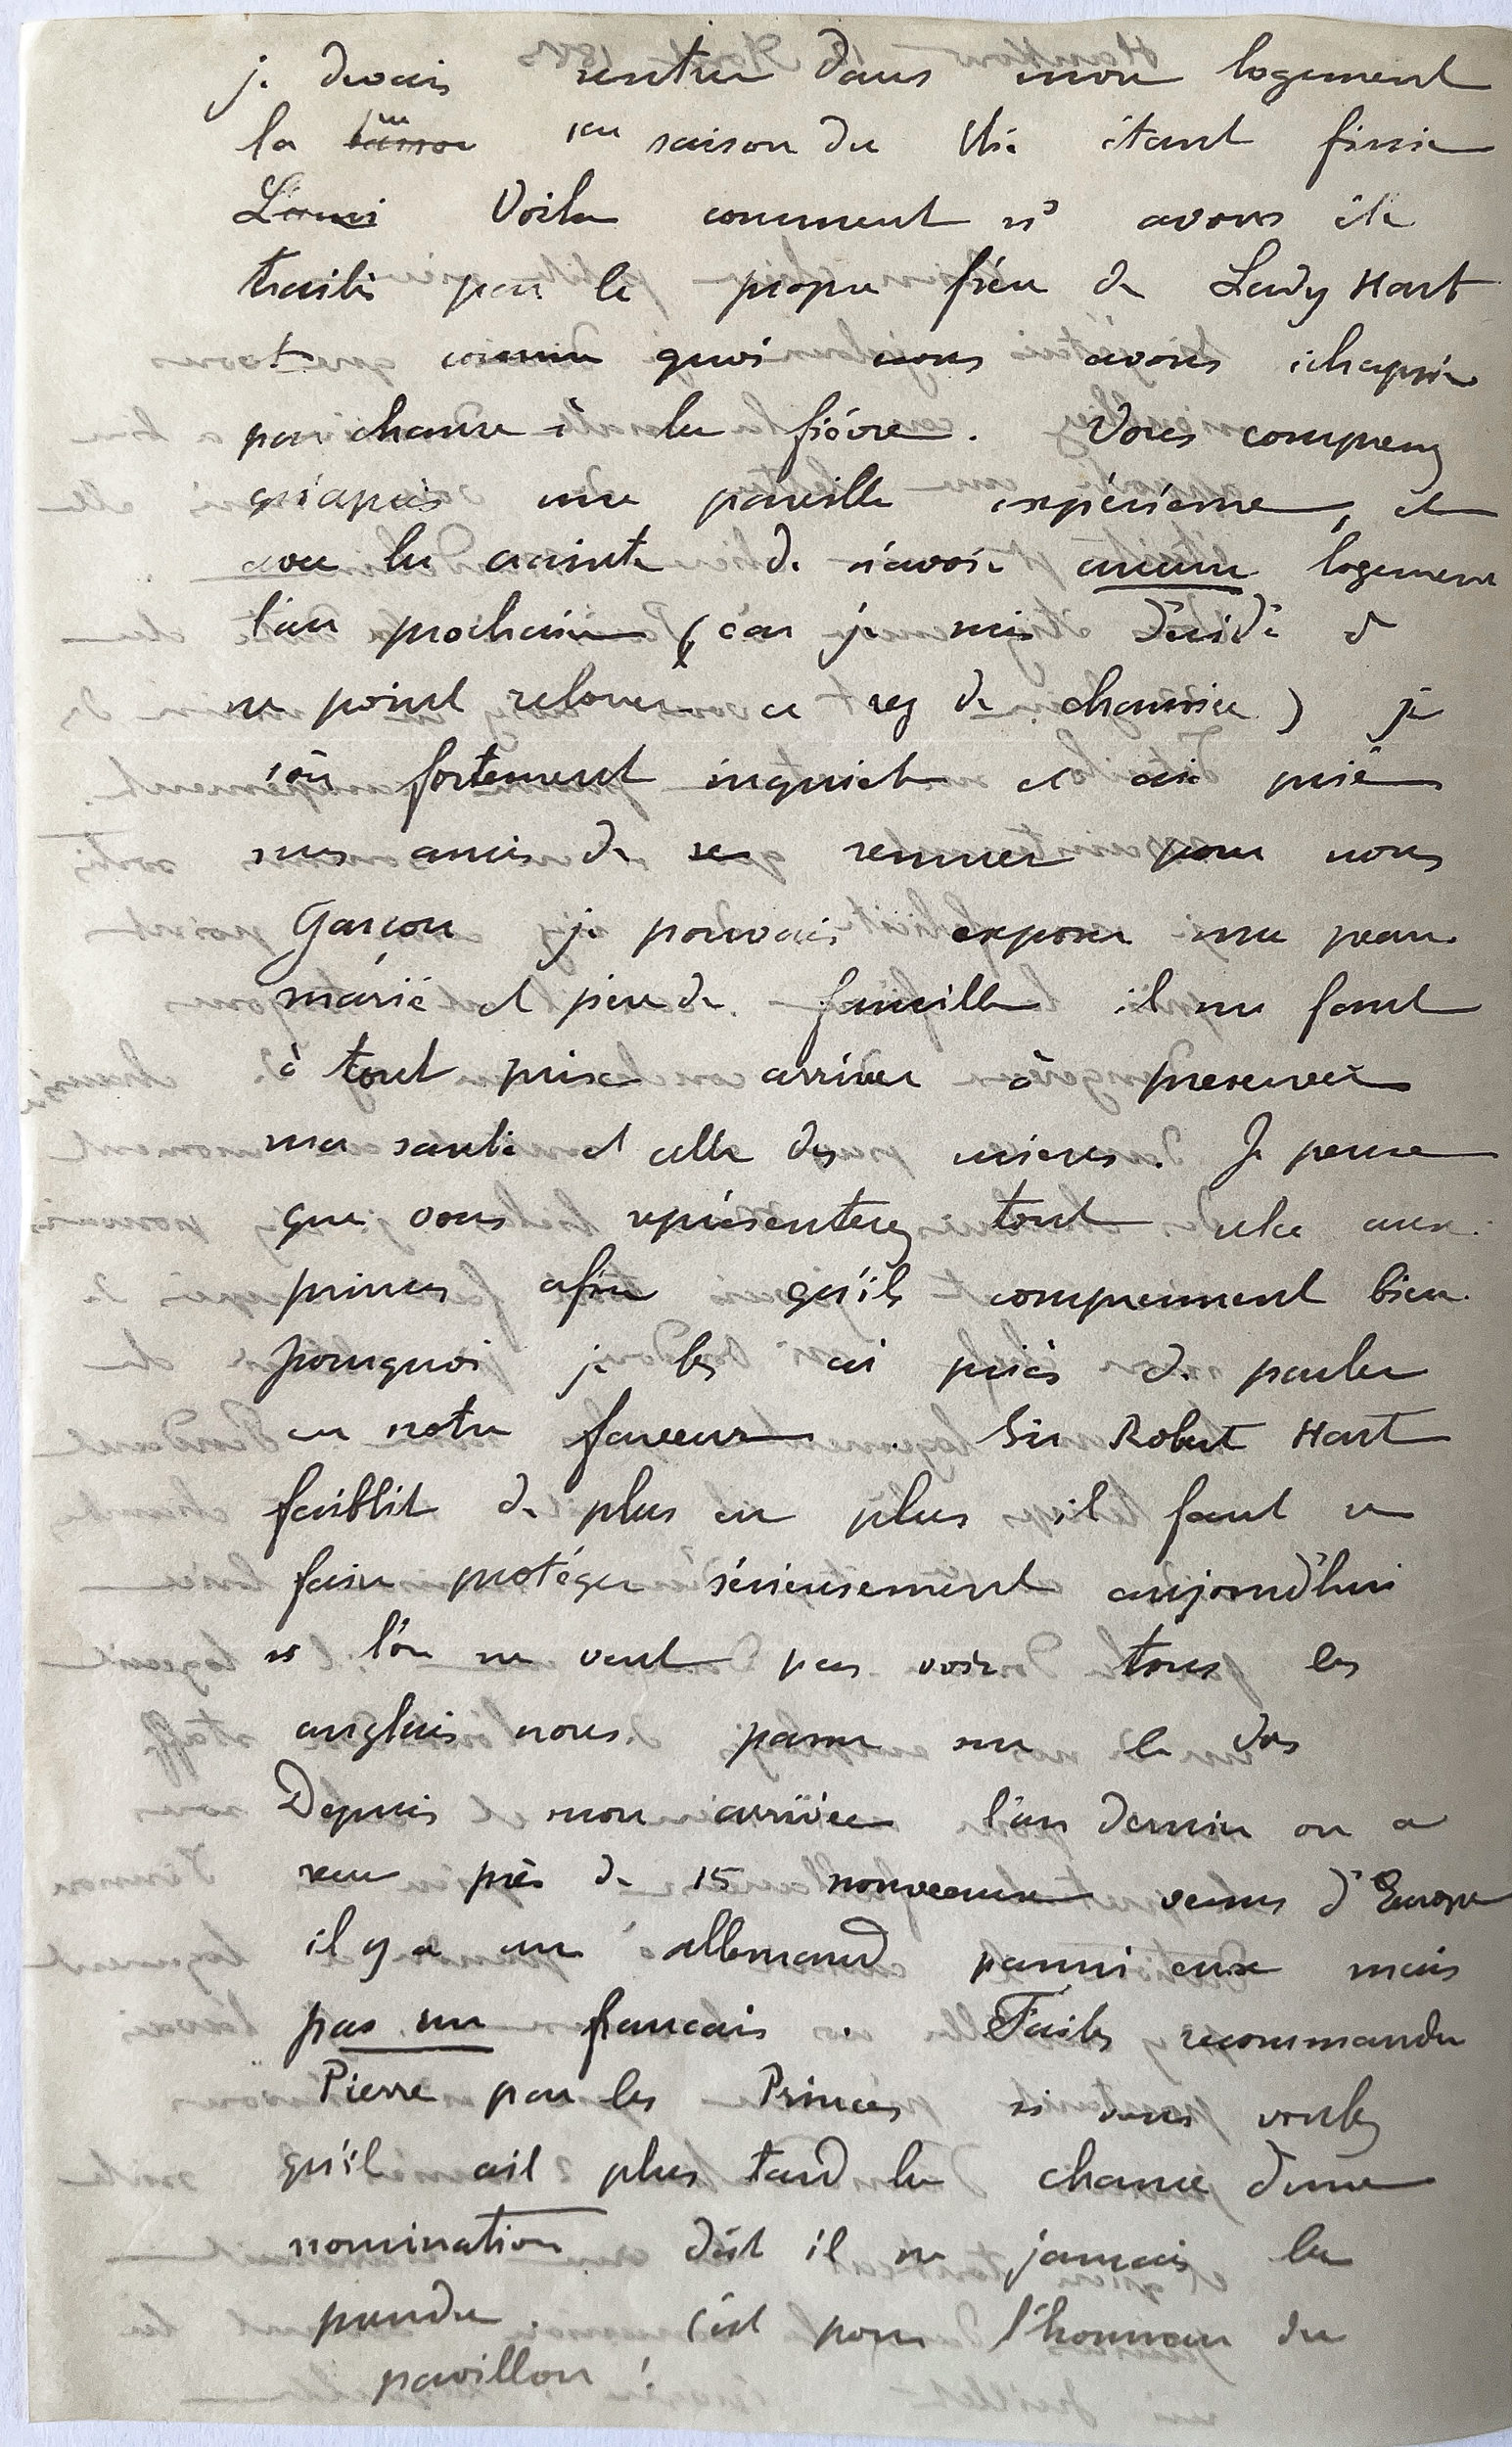 je devais rentrer dans mon logement
la 1ere saison du thé étant finie
Voila comment ns avons été
traités par le propre frère de Lady Hart
et comme quoi nous avons échappé
par chance à la fièvre. Vous comprenez
qu'après une pareille expérience, et
avec la crainte de n'avoir aucun logement
l'an prochain (car je suis décidé à
ne point relouer ce rez de chaussée) je
sois fortement inquiet et aie prié
mes amis de se remuer pour nous
Garçon je pouvais exposer ma peau
marié et père de famille il me faut
à tout prix arriver à preserver
ma santé et celle des miens. Je pense
que vous représenterez tout cela aux
princes afin qu'ils comprennent bien
pourquoi je les ai priés de parler
en notre faveur. Sir Robert Hart
faiblit de plus en plus il faut se
faire protéger sérieusement aujourd'hui
si l'on ne veut pas voir tous les
anglais nous passer sur le dos
Depuis mon arrivée l'an dernier on a
reçu près de 15 nouveaux venus d'Europe
il y a un allemand parmi eux mais
pas un francais. Faites recommander
Pierre par les Princes si vous voulez
qu'il ait plus tard la chance d'une
nomination dût il ne jamais la
prendre. C'est pour l'honneur du
pavillon!